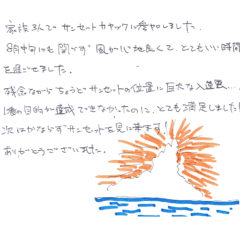 家族3人でサンセットカヤックに参加しました。
8月中旬にも関らず風が心地良くて、とてもいい時間
を過ごせました。
残念ながらちょうどサンセットの位置に巨大な入道雲…
1番の目的が達成できなかったのに、とても満足しました!
次はかならずサンセットを見に来ます!
ありがとうございました。